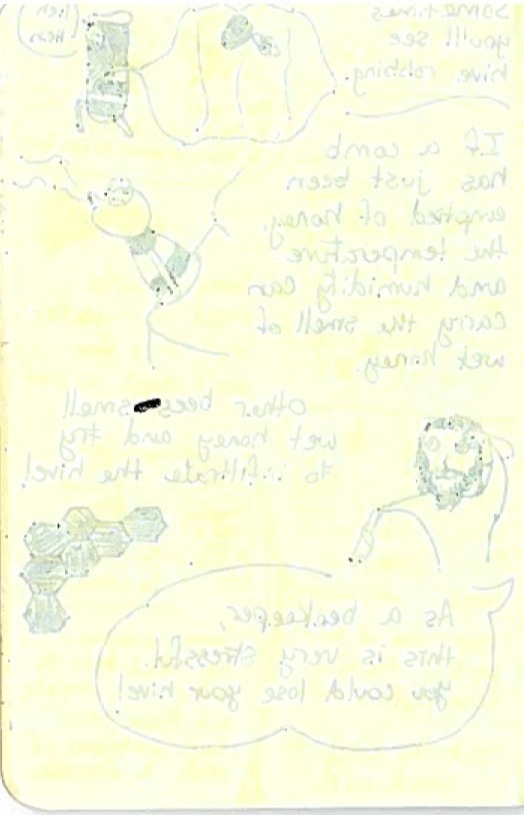 heh
heh
sometimes
you'll see
hive robbing.
If a comb
has just been
emptied of honey,
the temperature
and humidity can
carry the smell of
wet honey.
Other bees smell
wet honey and try
to infiltrate the hive!
As a beekeeper,
this is very stressful.
You could lose your hive!